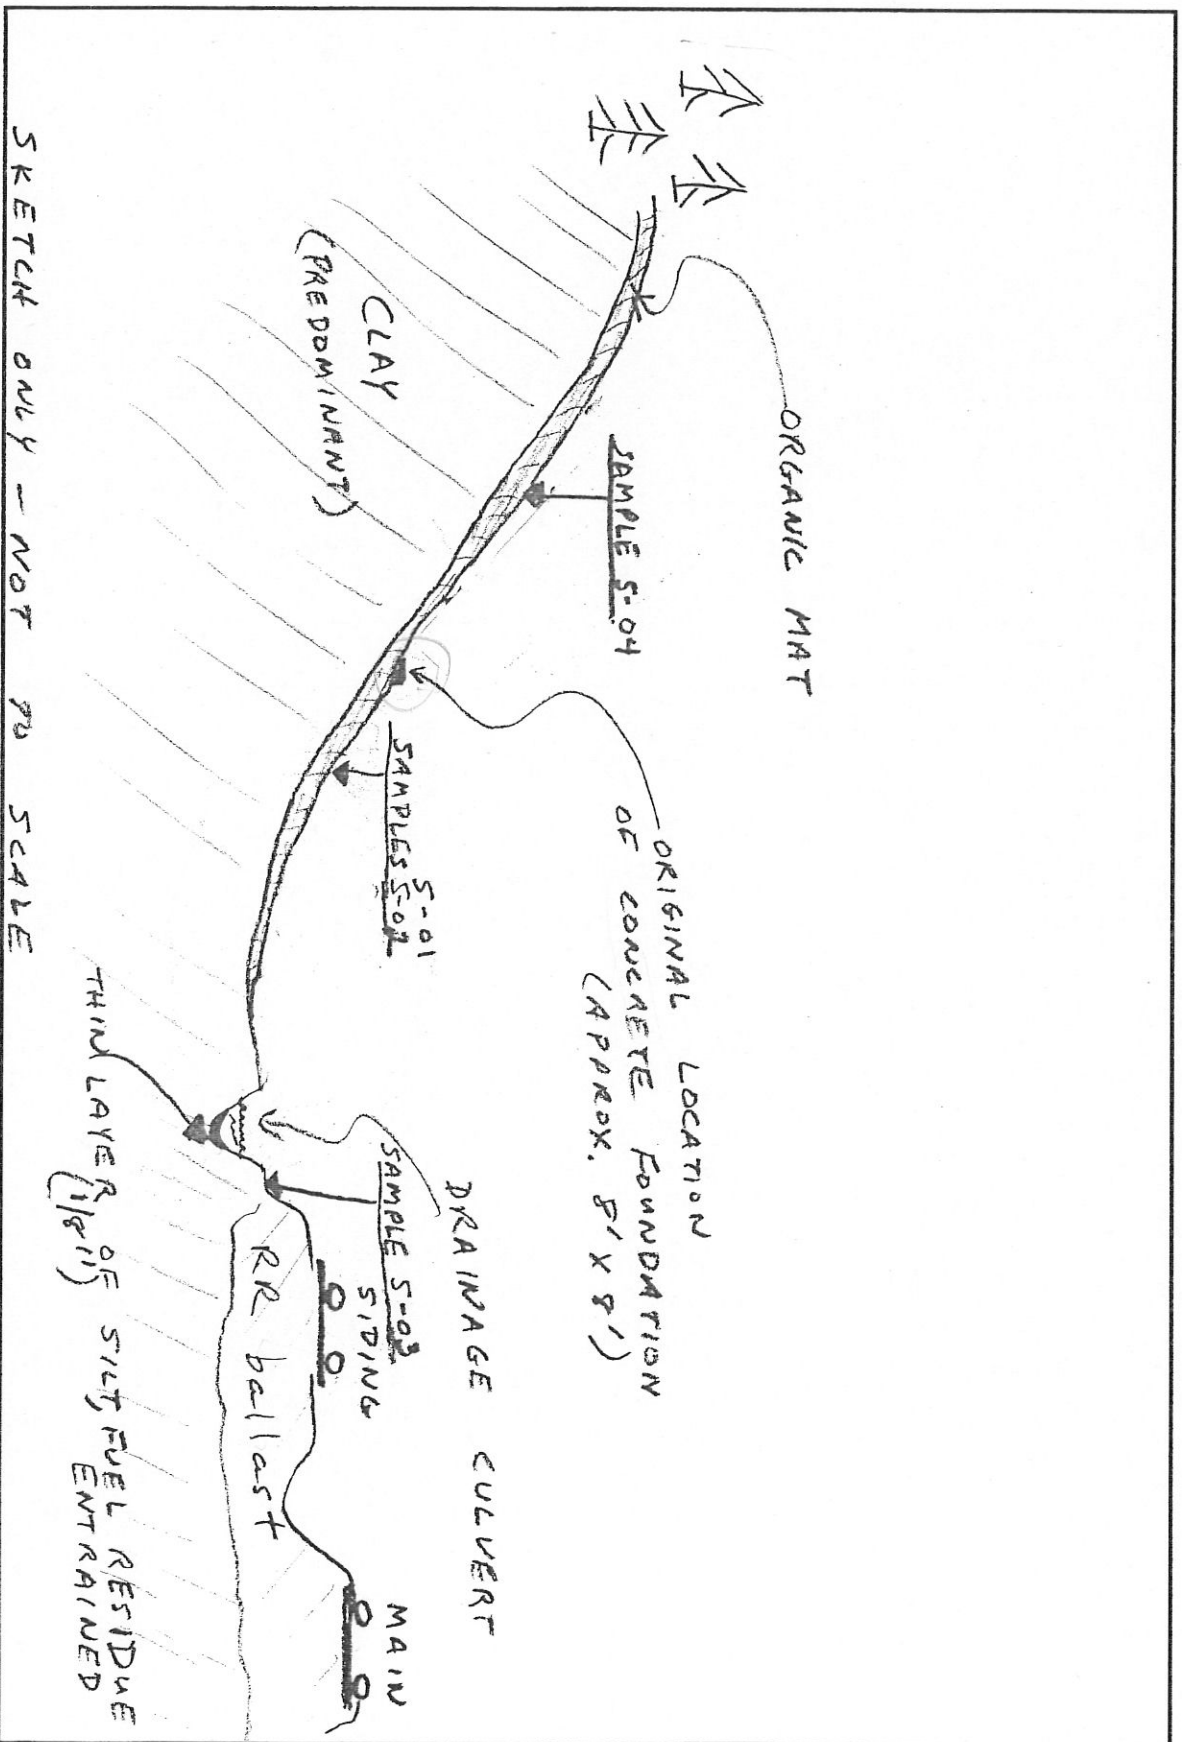 ORGANIC MAT
SAMPLE S-04
ORIGINAL LOCATION
OF CONCRETE FOUNDATION
(APPROX. 8' X 8')
CLAY
(PREDOMINANT)
S-01
SAMPLES S-02
DRAINAGE CULVERT
SAMPLE S-03
SIDING
MAIN
RR ballast
THIN LAYER OF SILT, FUEL RESIDUE
(1/8") ENTRAINED
SKETCH ONLY - NOT TO SCALE